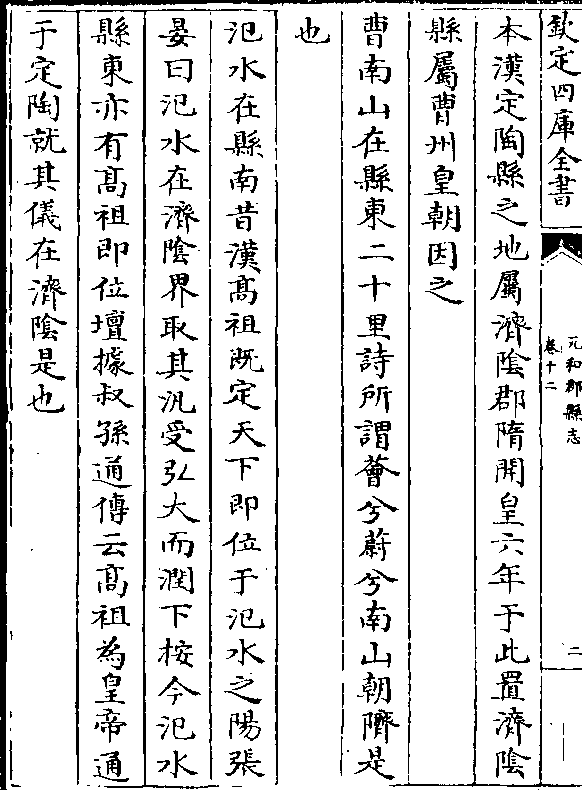 欽定四庫全書
元和郡縣志
卷十二
二
本漢定陶縣之地屬濟陰郡隋開皇六年于此置濟陰
縣屬曹州皇朝因之
曹南山在縣東二十里詩所謂薈兮蔚兮南山朝隮是
也
氾水在縣南昔漢髙祖既定天下即位于氾水之陽張
晏曰氾水在濟陰界取其汎受弘大而潤下桉今氾水
縣東亦有髙祖即位壇據叔孫通傳云髙祖為皇帝通
于定陶就其儀在濟陰是也